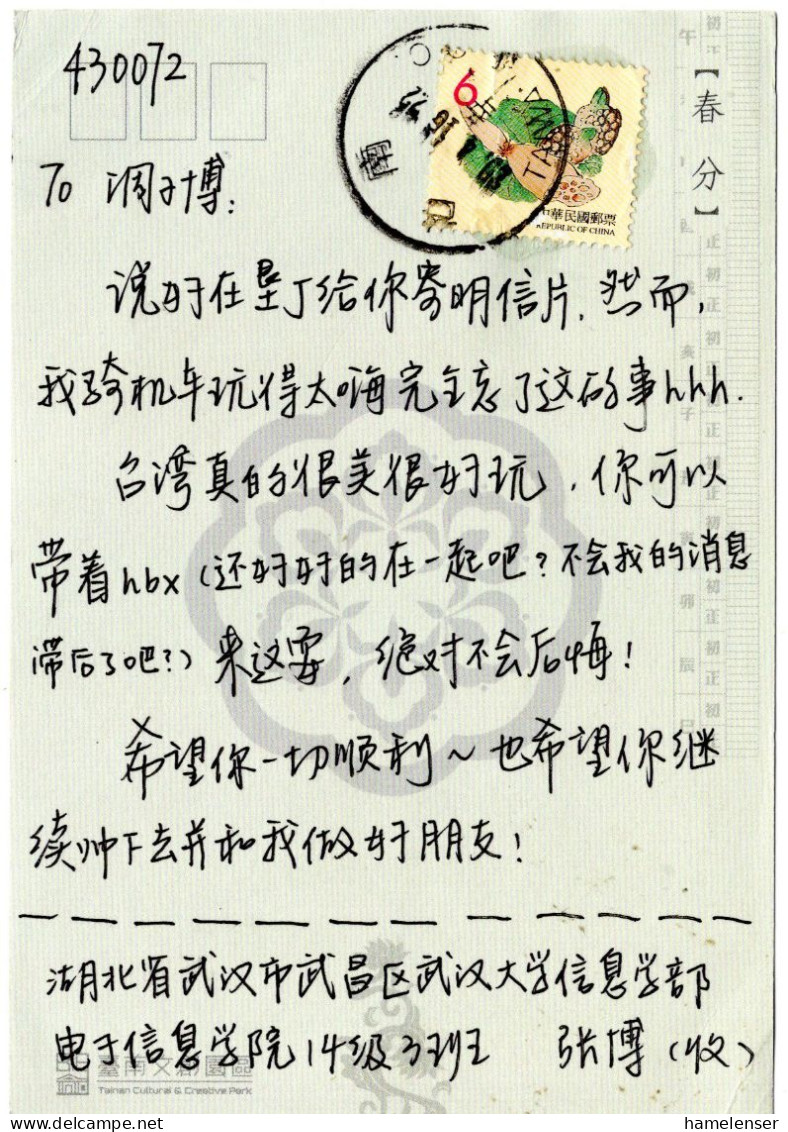 430072
【春分】
6
中華民國郵票
REPUBLIC OF CHINA
南
TAINAN
To 润博:
说好在垦丁给你寄明信片,然而,
我骑机车玩得太嗨完全忘了这码事hhh.
台湾真的很美很好玩,你可以
带着hbx(还好好的在一起吧?不会我的消息
滞后了吧?)来这耍,绝对不会后悔!
希望你一切顺利~也希望你继
续帅下去并和我做好朋友!
湖北省武汉市武昌区武汉大学信息学部
电子信息学院14级3班 张博(收)
臺南文創園區
Tainan Cultural & Creative Park
hamelenser